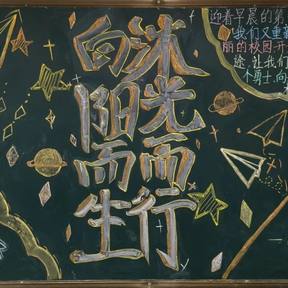 沐光而行
向阳而生
迎着早晨的第
我们又重
丽的校园开
途,让我们
个勇士,向